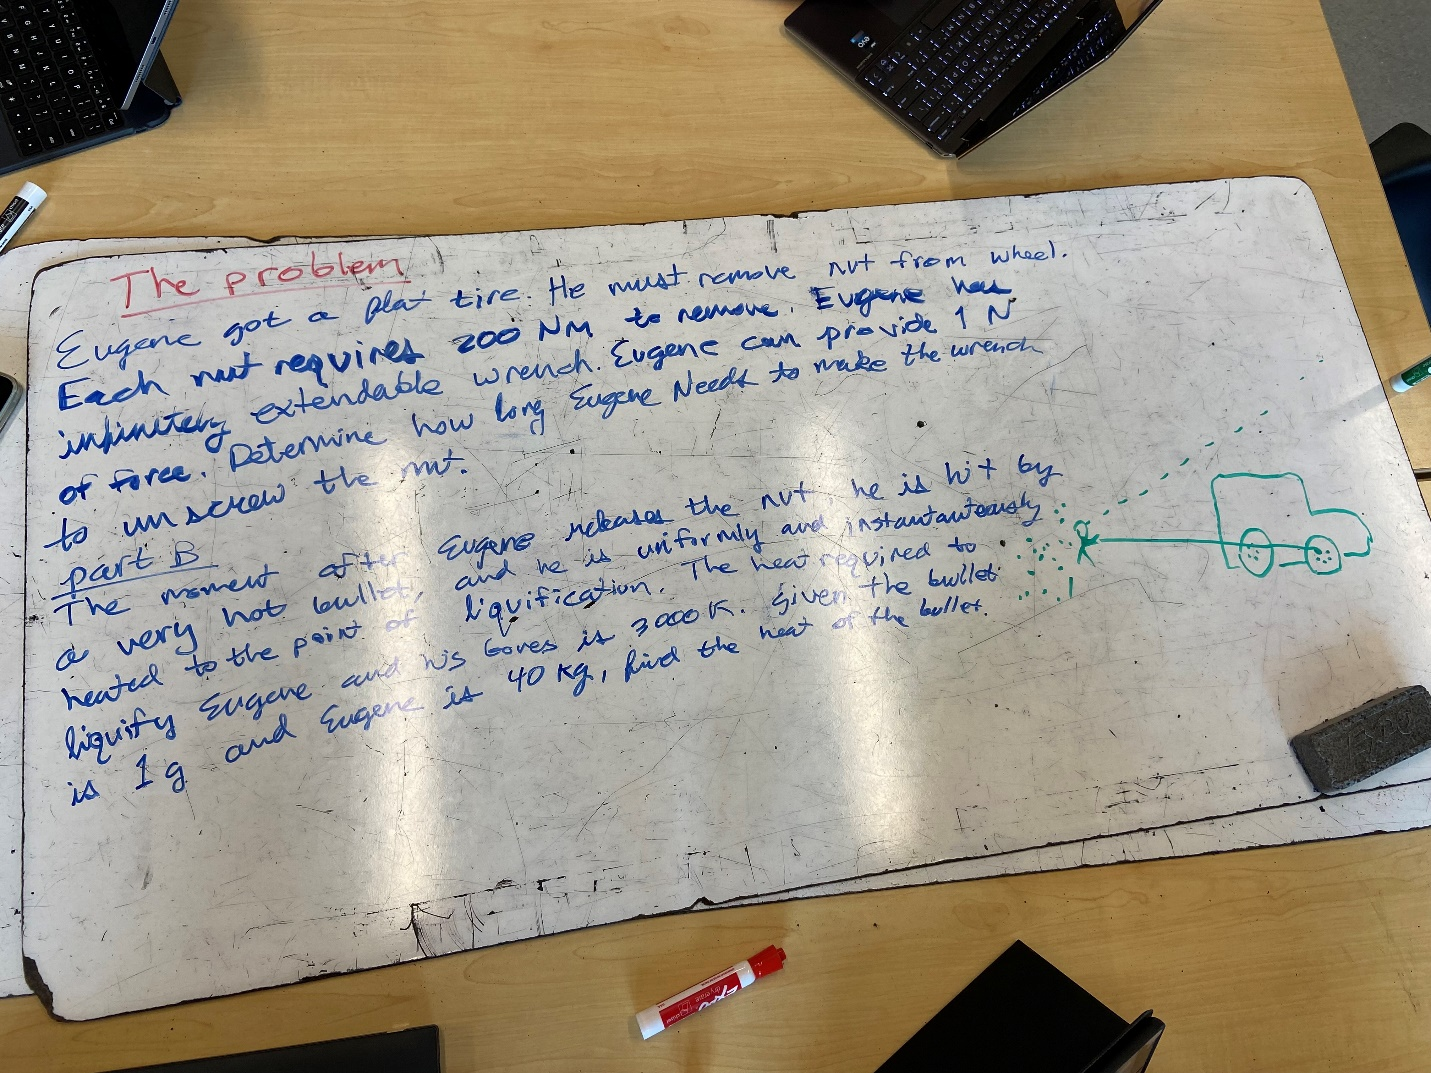 The problem
Eugene got a flat tire. He must remove nut from wheel.
Each nut requires 200 NM to remove. Eugene has
infinitely extendable wrench. Eugene can provide 1 N
of force. Determine how long Eugene Needs to make the wrench
to unscrew the nut.
part B
The moment after Eugene releases the nut he is hit by
a very hot bullet, and he is uniformly and instantauteously
heated to the point of liquification. The heat required to
liquify Eugene and his bones is 3000 K. Given the bullet
is 1 g and Eugene is 40 kg, find the heat of the bullet.
EXPO